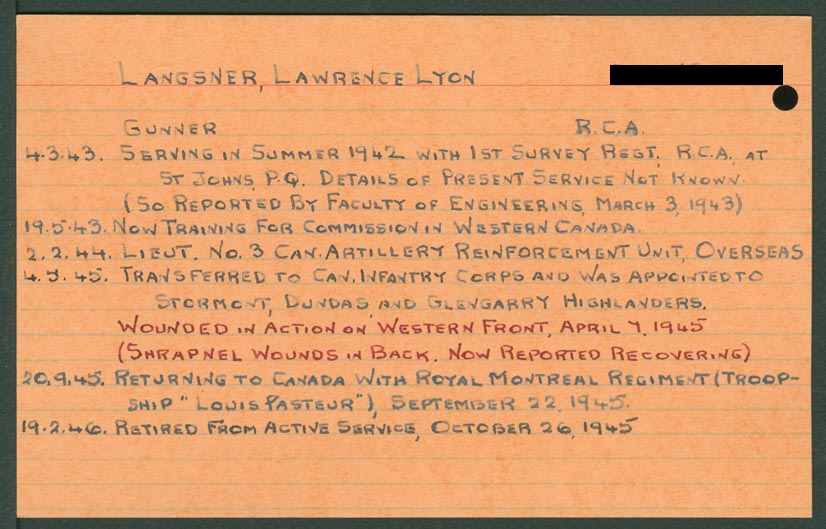 LANGSNER, LAWRENCE LYON
GUNNER R.C.A.
4.3.43. SERVING IN SUMMER 1942 WITH 1ST SURVEY REGT, R.C.A., AT
ST JOHNS, P.Q. DETAILS OF PRESENT SERVICE NOT KNOWN.
(SO REPORTED BY FACULTY OF ENGINEERING, MARCH 3, 1943)
19.5.43. NOW TRAINING FOR COMMISSION IN WESTERN CANADA.
2.2.44. LIEUT. NO. 3 CAN. ARTILLERY REINFORCEMENT UNIT, OVERSEAS
4.5.45. TRANSFERRED TO CAN. INFANTRY CORPS AND WAS APPOINTED TO
STORMONT, DUNDAS AND GLENGARRY HIGHLANDERS.
WOUNDED IN ACTION ON WESTERN FRONT, APRIL 7, 1945
(SHRAPNEL WOUNDS IN BACK. NOW REPORTED RECOVERING)
20.9.45. RETURNING TO CANADA WITH ROYAL MONTREAL REGIMENT (TROOP-
SHIP "LOUIS PASTEUR"), SEPTEMBER 22, 1945.
19.2.46. RETIRED FROM ACTIVE SERVICE, OCTOBER 26, 1945